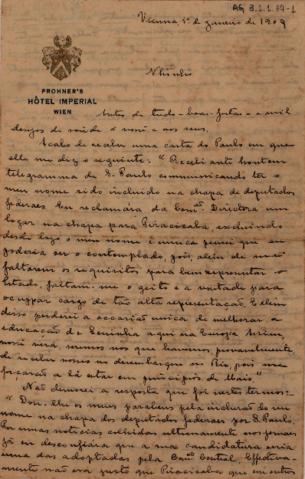 AG 3.1.1.84-1
Vienna, 1º de janeiro de 1909
FROHNER'S
HÔTEL IMPERIAL
WIEN
Nhinhô
Antes de tudo - boas festas e mil
desejos de saude á você e aos seus.
Acabo de receber uma carta do Paulo em que
elle me diz o seguinte: "Recebi ante hontem
telegramma de S. Paulo communicando ter o
meu nome sido incluido na chapa de deputados
federaes. Eu reclamára da Comm. Directora um
logar na chapa para Piracicaba, excluindo
desde logo o meu nome é unica pessoa que eu
poderia ser o contemplado, pois, alem de me
faltarem os requisitos para bem representar o
Estado, faltam-me o geito e a vontade para
occupar cargo de tão alta representação. E alem
disso perderei a occasião unica de melhorar a
educação de Eeninha aqui na Europa. Assim,
você verá, seremos nós que teremos, provavelmente
de receber vocês no desembarque no Rio, pois me
forcarão a lá estar em principios de Maio."
Não demorei a resposta que foi nestes termos:
"Dou-lhe os meus parabens pela inclusão do seu
nome na chapa dos deputados federaes por S. Paulo.
Por umas noticias colhidas ultimamente em jornaes
já eu desconfiára que a sua candidatura seria
uma das adoptadas pela Comm. Central. Effectiva-
mente não era justo que Piracicaba que em outros